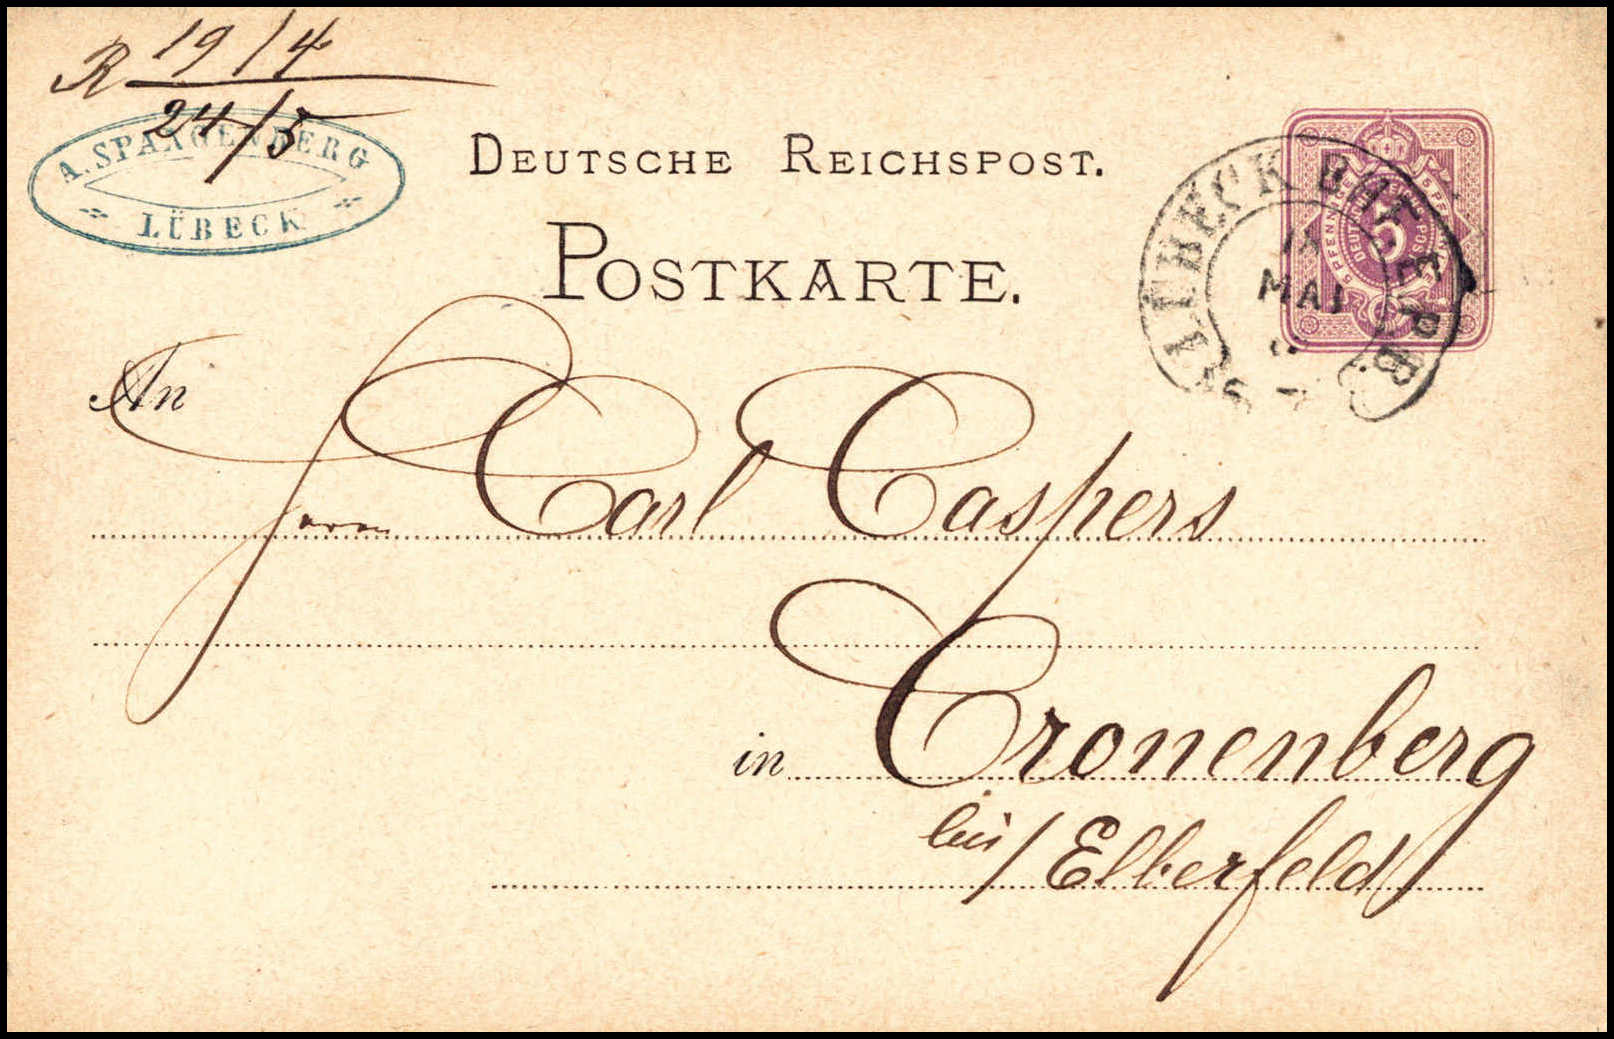 R 19/4
24/5
A. SPANGENBERG
LÜBECK
DEUTSCHE REICHSPOST.
POSTKARTE.
5 PFENNIG 5 PFENNIG
DEUTSCHE REICHSPOST
5
LÜBECK BHF
MAI
An
Herrn Carl Caspers
in Cronenberg
bei/Elberfeld